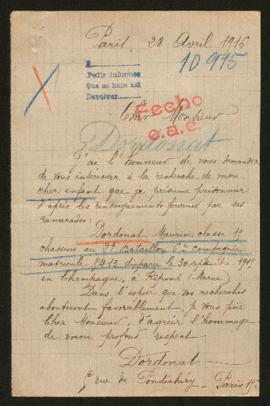 Paris, 28 Avril 1916
10915
Pedir informes
Que se hace aqui
Devolver
Fecho
e.a.e.
Cher Monsieur
Dordonat
J'ai l'honneur de vous demander
de vous intéresser à la recherche de mon
cher enfant que je présume prisonnier
d'après les renseignements fournis par ses
camarades:
Dordonat Maurice classe
chasseur au Bataillon Compagnie
matricule disparu le 30 septembre 1915
en Champagne, à Ripont (Marne)
Dans l'espoir que vos recherches
aboutiront favorablement, je vous prie
Cher Monsieur, d'agréer l'hommage
de mon profond respect
Dordonat
5 rue de Pondichéry - Paris 15e